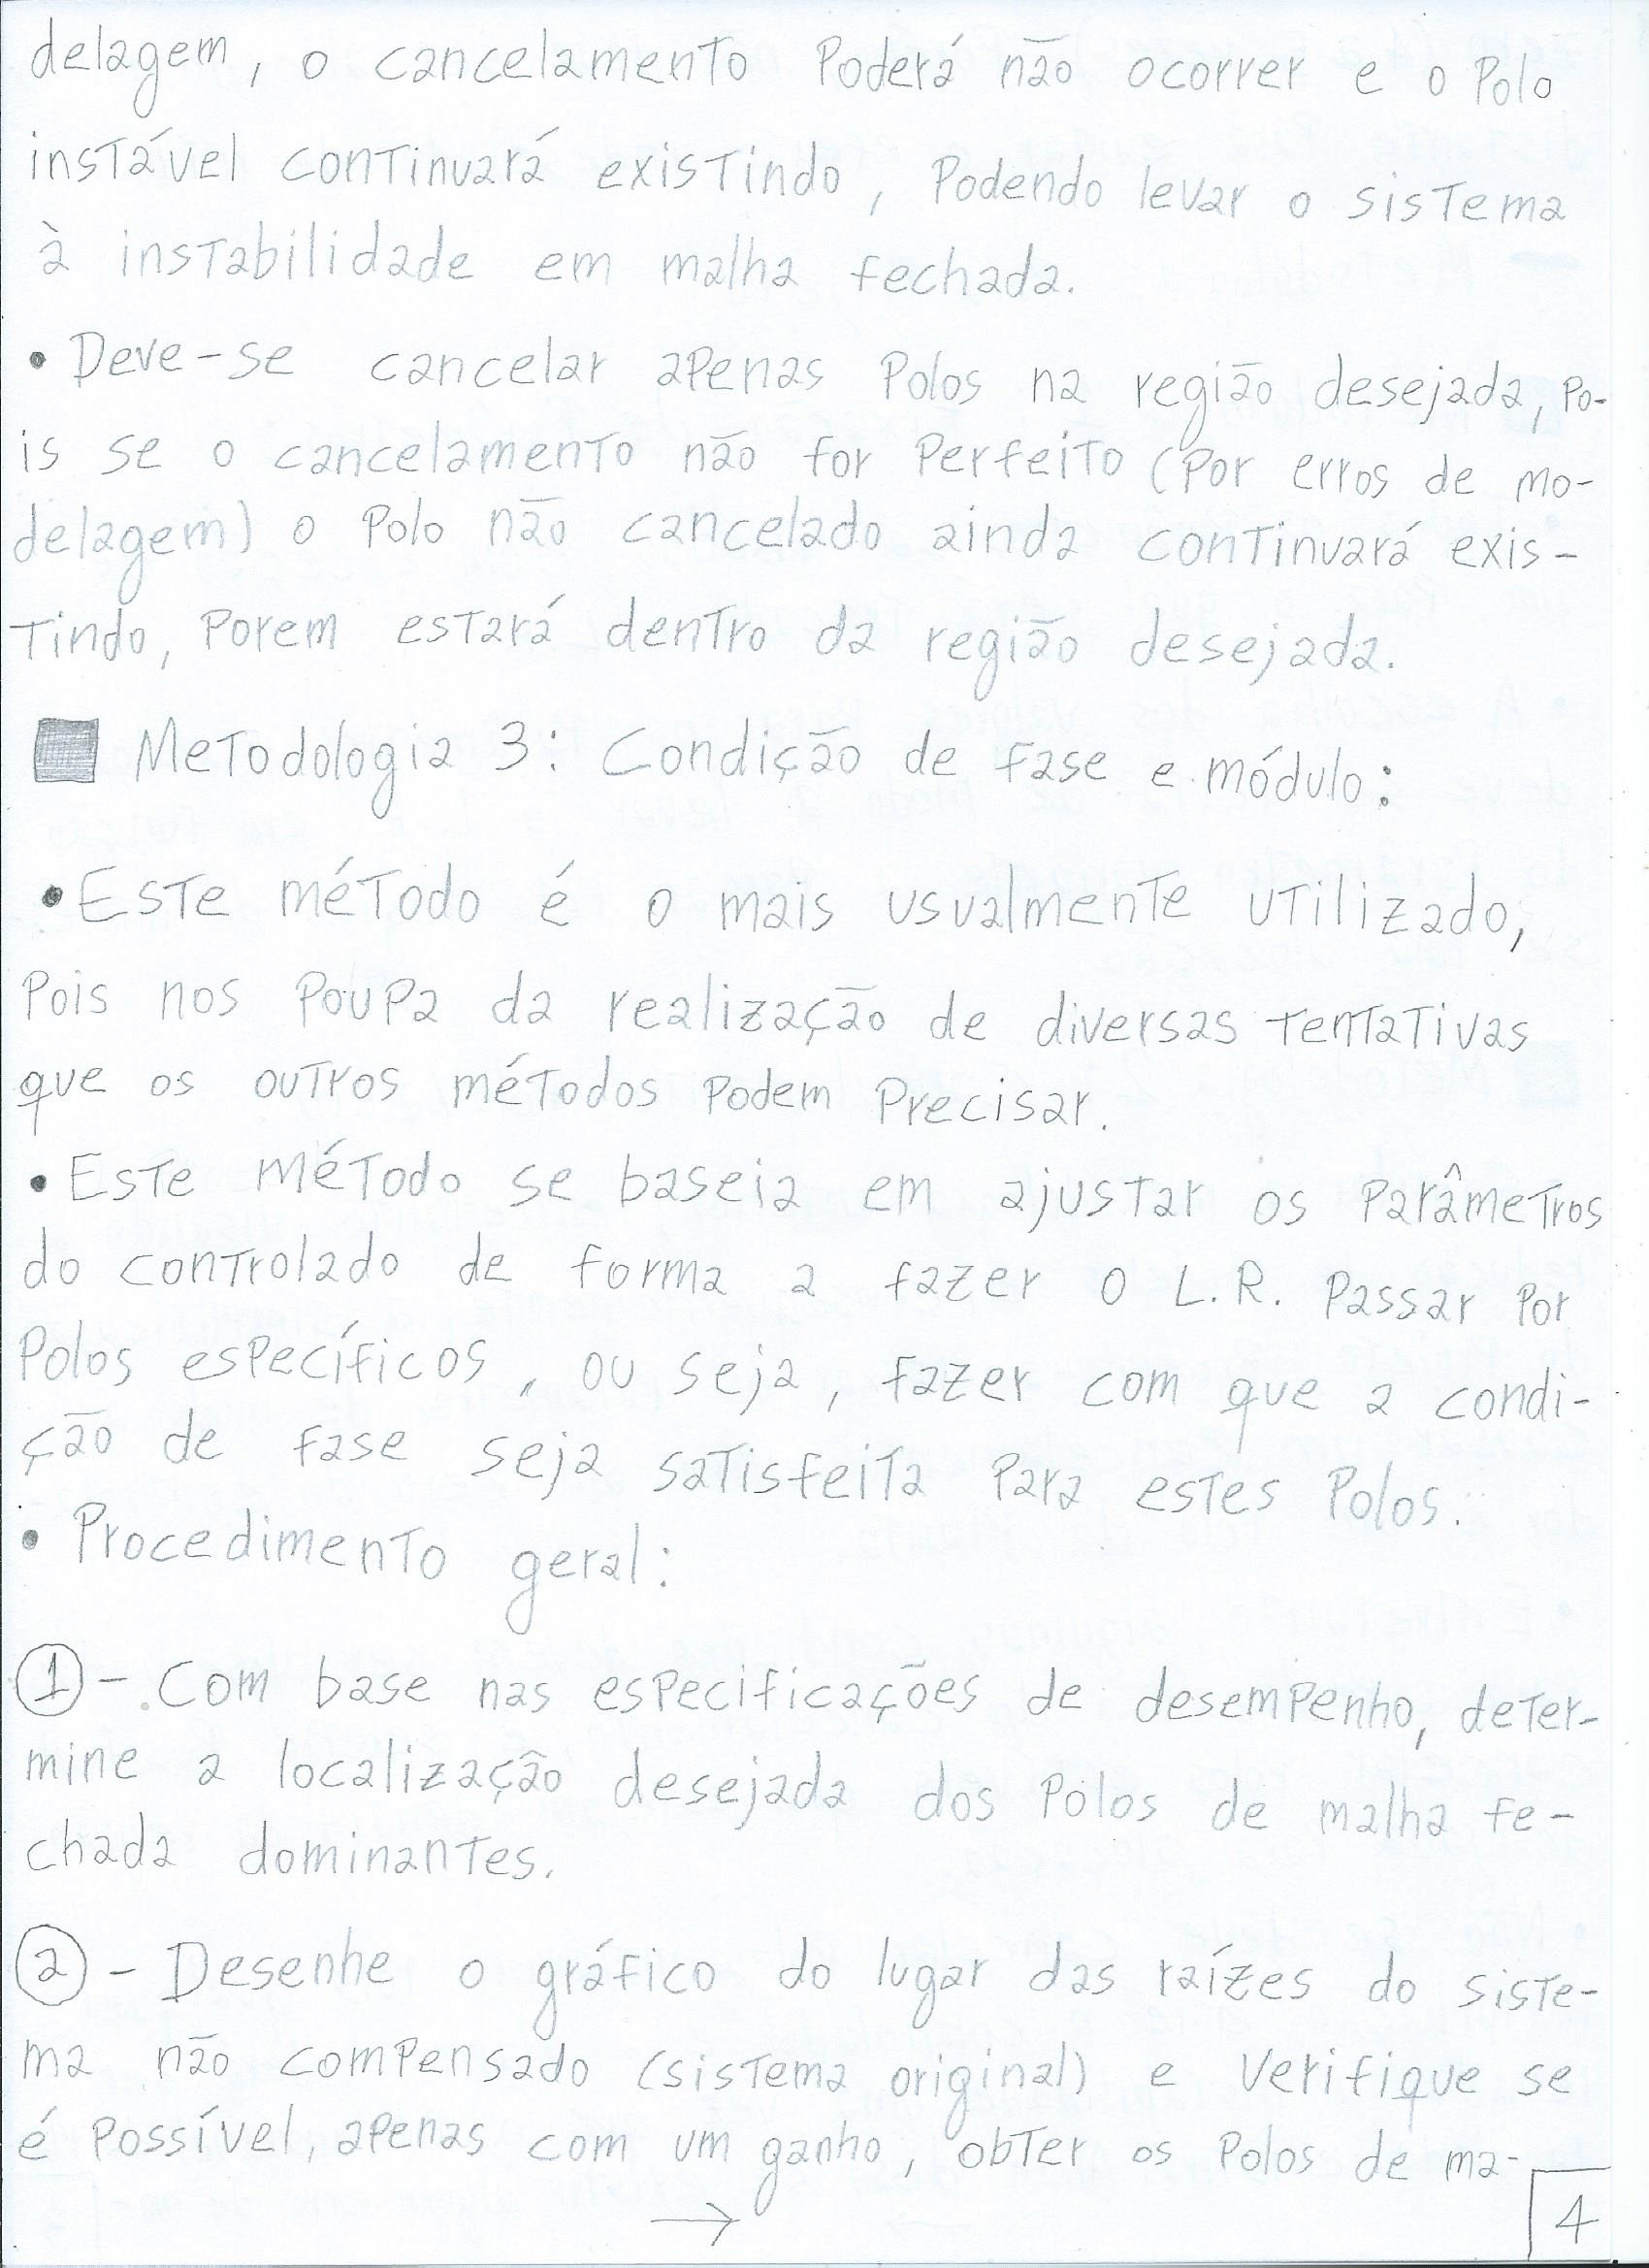 delagem, o cancelamento Poderá não ocorrer e o Polo
instável continuará existindo, Podendo levar o sistema
à instabilidade em malha fechada.
• Deve-se cancelar apenas Polos na região desejada, Po-
is se o cancelamento não for Perfeito (Por erros de mo-
delagem) o Polo não cancelado ainda continuará exis-
tindo, Porem estará dentro da região desejada.
Metodologia 3: Condição de fase e módulo:
• Este método é o mais usualmente utilizado,
Pois nos Poupa da realização de diversas tentativas
que os outros métodos Podem Precisar.
• Este método se baseia em ajustar os Parâmetros
do controlado de forma a fazer o L.R. Passar Por
Polos específicos, ou seja, fazer com que a condi-
ção de fase seja satisfeita Para estes Polos.
• Procedimento geral:
1 - Com base nas especificações de desempenho, deter-
mine a localização desejada dos Polos de malha fe-
chada dominantes.
2 - Desenhe o gráfico do lugar das raízes do siste-
ma não compensado (sistema original) e Verifique se
é Possível, apenas com um ganho, obter os Polos de ma-
→ 4